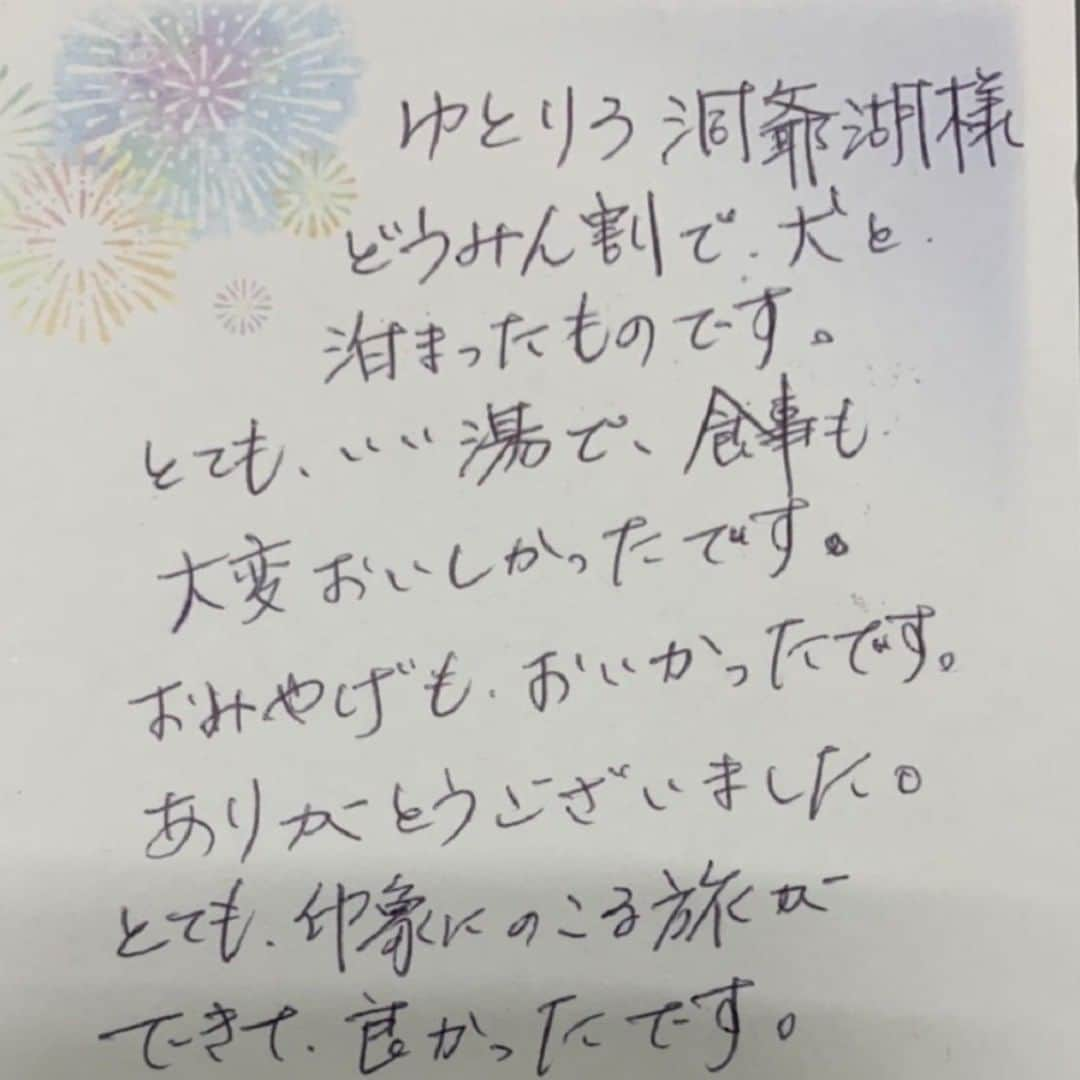 ゆとりろ洞爺湖様
どうみん割で、犬と
泊まったものです。
とても、いい湯で、食事も
大変おいしかったです。
おみやげも、おいかったです。
ありがとうございました。
とても、印象にのこる旅が
できて、良かったです。